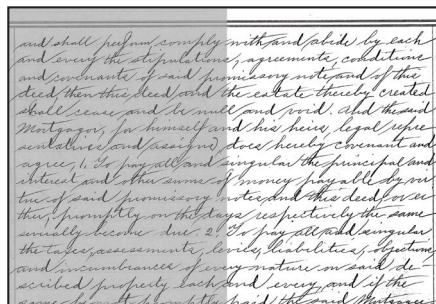 and shall perform comply with and abide by each
and every the stipulations, agreements, conditions
and covenants of said promissory note and of this
deed then this deed and the estate thereby created
shall cease and be null and void. And the said
Mortgagor, for himself and his heirs, legal repre
sentatives and assigns, does hereby covenant and
agree, 1. To pay all and singular the principal and
interest and other sums of money payable by vir
tue of said promissory note, and this deed, or ei
ther, promptly on the days respectively the same
severally become due 2. To pay all and singular
the taxes, assessments, levies, liabilities, obligations,
and incumbrances of every nature on said de
scribed property each and every and if the
same be not promptly paid the said Mortgagee